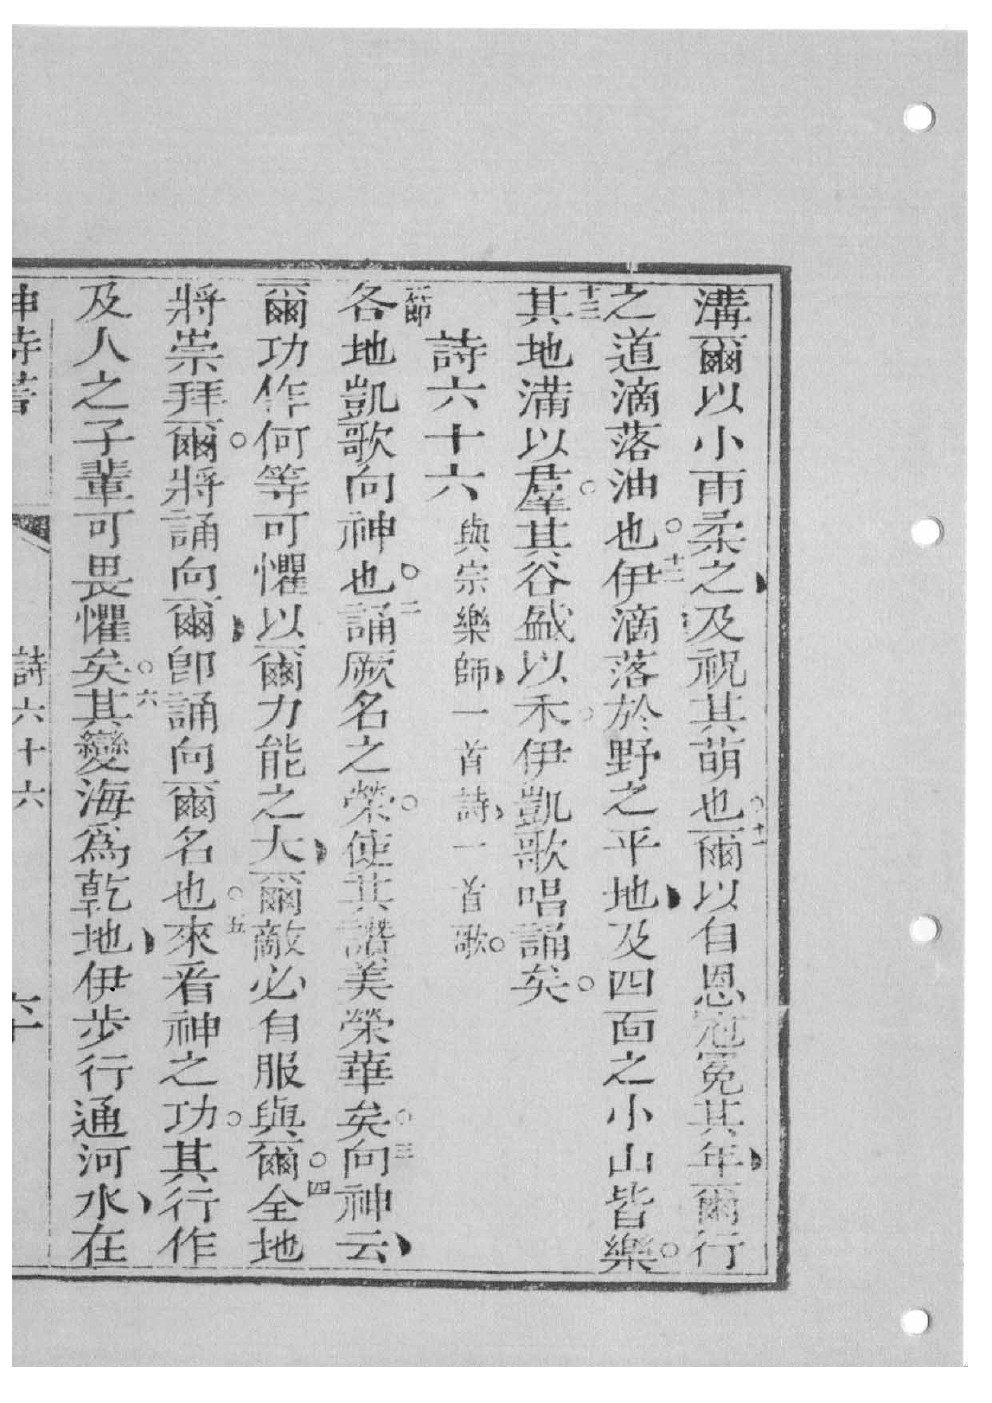 溝爾以小雨柔之、及祝其萌也。十一爾以自恩冠冕其年、爾行
之道滴落油也。十二伊滴落於野之平地、及四面之小山皆樂。
十三其地滿以羣。其谷盛以禾。伊凱歌唱誦矣。
詩六十六 與宗樂師、一首詩、一首歌。
一節各地凱歌向神也。二誦厥名之榮。使其讚美榮華矣。三向神云、
爾功作何等可懼以爾力能之大、爾敵必自服與爾。四全地
將崇拜爾。將誦向爾、卽誦向爾名也。五來看神之功。其行作
及人之子輩可畏懼矣。六其變海為乾地、伊步行通河水、在
神詩書 詩六十六